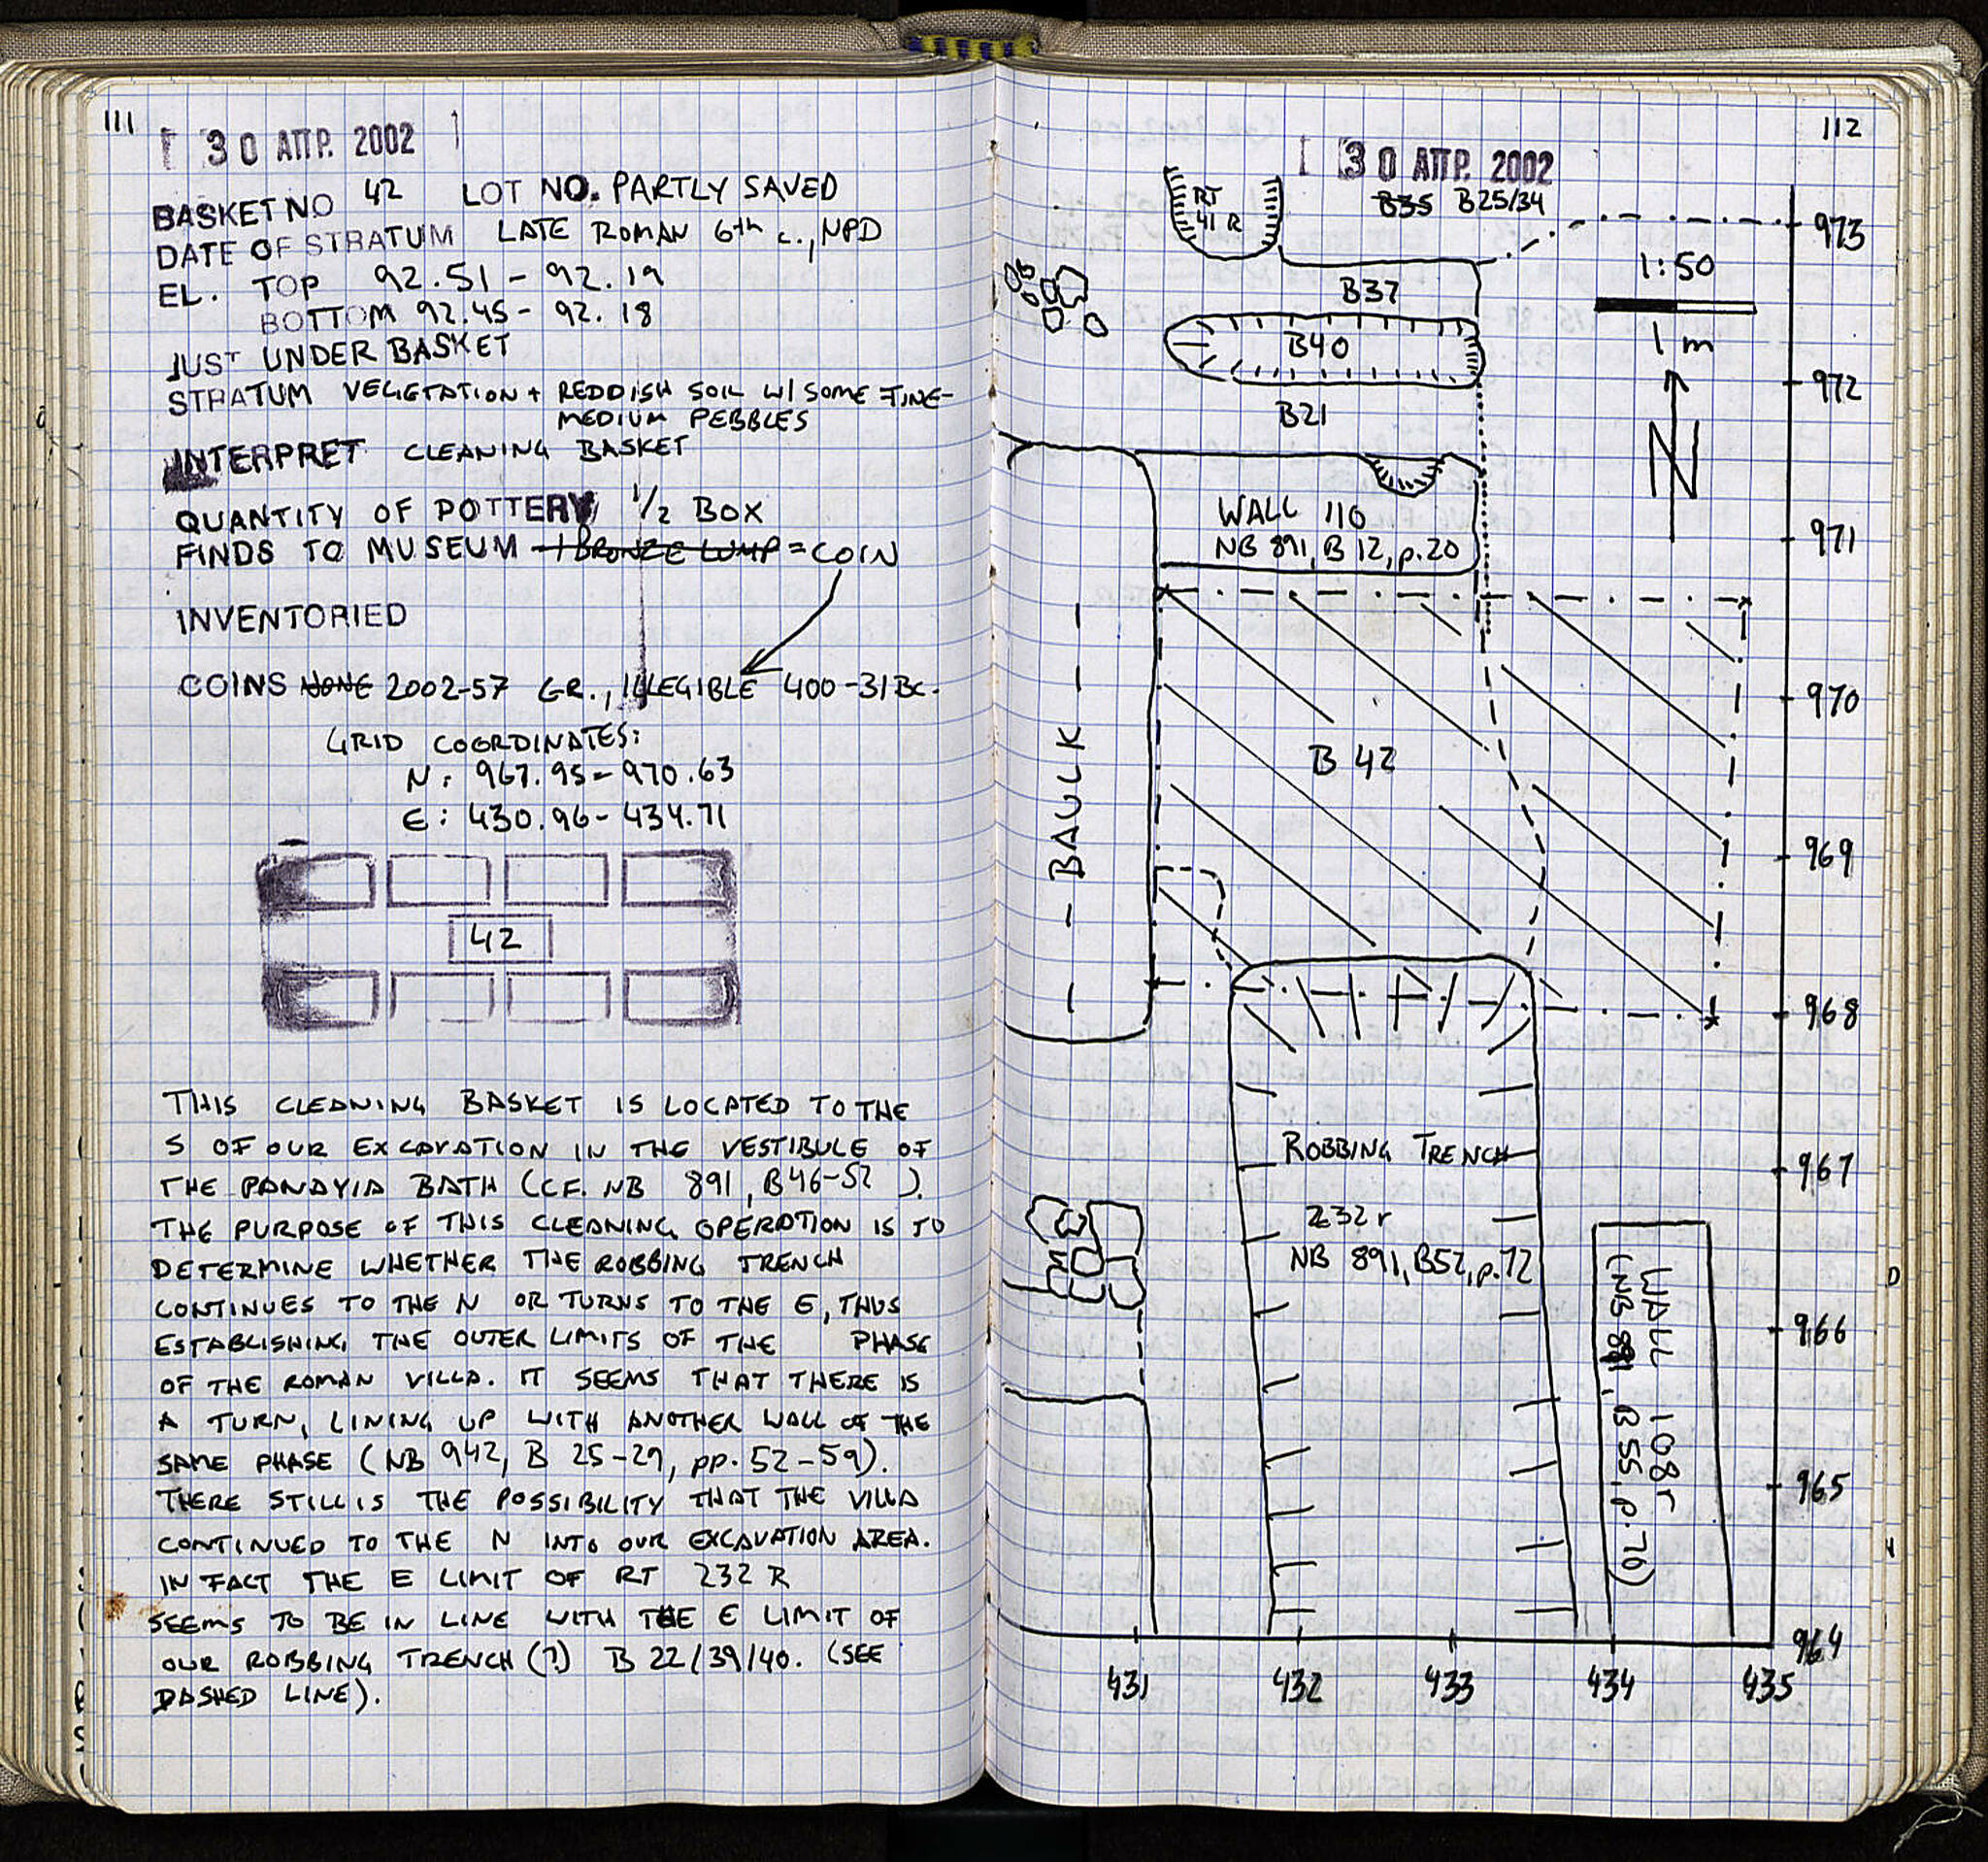 111
30 ΑΠΡ. 2002
BASKET NO 42 LOT NO. PARTLY SAVED
DATE OF STRATUM LATE ROMAN 6th c., NPD
EL. TOP 92.51 - 92.19
BOTTOM 92.45 - 92.18
JUST UNDER BASKET
STRATUM VEGETATION + REDDISH SOIL W/ SOME FINE-
MEDIUM PEBBLES
INTERPRET CLEANING BASKET
QUANTITY OF POTTERY 1/2 BOX
FINDS TO MUSEUM 1 BRONZE LUMP = COIN
INVENTORIED
COINS NONE 2002-57 GR., ILLEGIBLE 400-31 BC.
GRID COORDINATES:
N: 967.95 - 970.63
E: 430.96 - 434.71
42
THIS CLEANING BASKET IS LOCATED TO THE
S OF OUR EXCAVATION IN THE VESTIBULE OF
THE PANAYIA BATH (CF. NB 891, B46-52 ).
THE PURPOSE OF THIS CLEANING OPERATION IS TO
DETERMINE WHETHER THE ROBBING TRENCH
CONTINUES TO THE N OR TURNS TO THE E, THUS
ESTABLISHING THE OUTER LIMITS OF THE PHASE
OF THE ROMAN VILLA. IT SEEMS THAT THERE IS
A TURN, LINING UP WITH ANOTHER WALL OF THE
SAME PHASE (NB 942, B 25-29, pp. 52-59).
THERE STILL IS THE POSSIBILITY THAT THE VILLA
CONTINUED TO THE N INTO OUR EXCAVATION AREA.
IN FACT THE E LIMIT OF RT 232 R
SEEMS TO BE IN LINE WITH THE E LIMIT OF
OUR ROBBING TRENCH (?) B 22/39/40. (SEE
DASHED LINE).
112
30 ΑΠΡ. 2002
RT
41 R
B35 B25/34
973
1:50
1 m
B37
B40
972
B21
N
WALL 110
NB 891, B 12, p.20
971
970
B 42
BAULK
969
968
ROBBING TRENCH
232 r
NB 891, B52, p.72
967
WALL 108r
(NB 891, B 55, p.70)
966
965
964
431
432
433
434
435